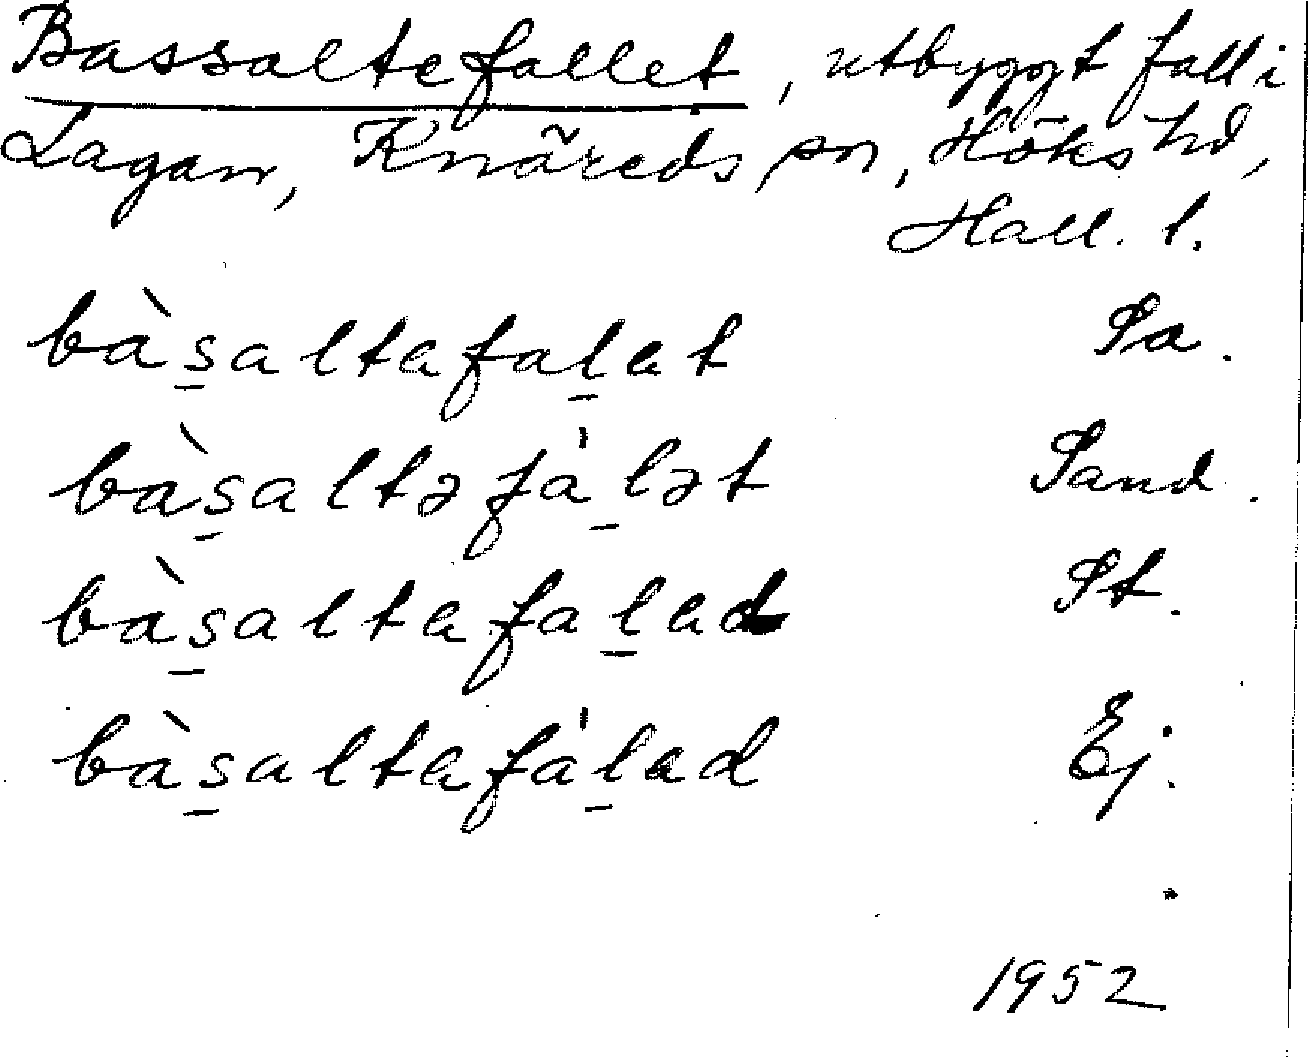 Bassaltefallet, utbyggt fall i
Lagan, Knäreds sn, Höks hd,
Hall. l.
bàs̱altafaḻat Sa.
bàs̱altəfa̍ḻət Sand.
bàs̱altafaḻad St.
bàs̱altafa̍ḻad Ej.
1952